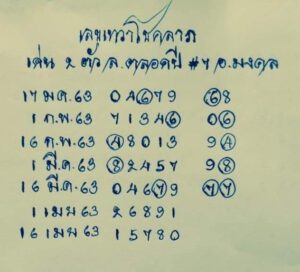 เลขเทวาโชคลาภ
เด่น 2 ตัว/ล. ตลอดปี #7 อ.มงคล
17 มค.63 04679 68
1 ก.พ 63 71346 06
16 ก.พ 63 48013 94
1 มี.ค.63 82457 98
16 มี.ค.63 04679 77
1 เมษ 63 26891
16 เมษ 63 15780